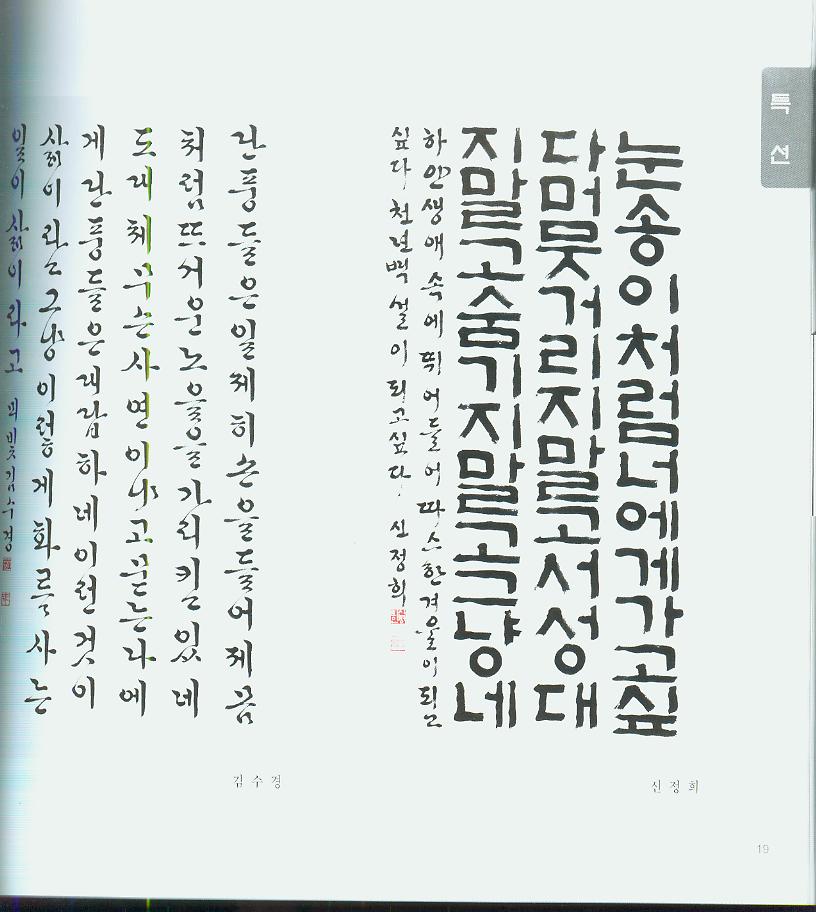 특선
눈송이처럼너에게가고싶
다머뭇거리지말고서성대
지말고숨기지말고그냥네
하얀생애속에뛰어들어따스한겨울이되고
싶다 천년백설이되고싶다 신정희
단풍들은일제히손을들어제몸
처럼뜨거운노을을가리키고있네
도대체무슨사연이냐고묻는나에
게단풍들은대답하네이런것이
삶이라고그냥이렇게화르르사는
일이삶이라고 뫼빛김수경
신정희
김수경
19